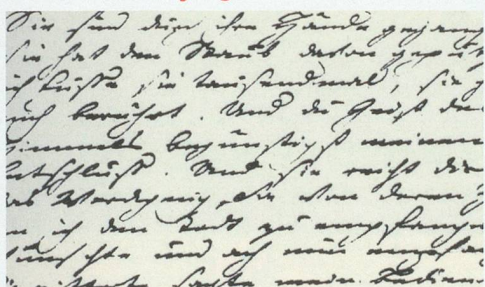 Sie sind durch ihre Hände gegang
sie hat den Staub davon geputz
ich küsse sie tausendmal, sie h
euch berührt. Und du Geist des
Himmels begünstigst meinen
Entschluss. Und sie reicht dir
das Werckzeug, Sie von deren
n ich den Todt zu empfangen
wünschte und ach nun empfan
zitterte sagte mein Bedien